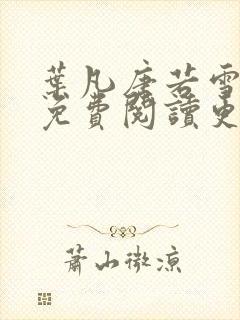 葉凡唐若雪
免費閱讀更
蕭山微涼